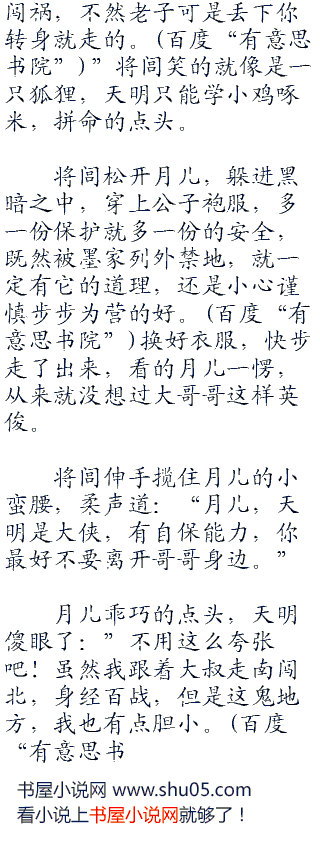 闯祸，不然老子可是丢下你
转身就走的。(百度“有意思
书院”)”将闾笑的就像是一
只狐狸，天明只能学小鸡啄
米，拼命的点头。
将闾松开月儿，躲进黑
暗之中，穿上公子袍服，多
一份保护就多一份的安全，
既然被墨家列外禁地，就一
定有它的道理，还是小心谨
慎步步为营的好。(百度“有
意思书院”)换好衣服，快步
走了出来，看的月儿一愣，
从来就没想过大哥哥这样英
俊。
将闾伸手揽住月儿的小
蛮腰，柔声道：“月儿，天
明是大侠，有自保能力，你
最好不要离开哥哥身边。”
月儿乖巧的点头，天明
傻眼了：”不用这么夸张
吧！虽然我跟着大叔走南闯
北，身经百战，但是这鬼地
方，我也有点胆小。(百度
“有意思书
书屋小说网 www.shu05.com
看小说上书屋小说网就够了！